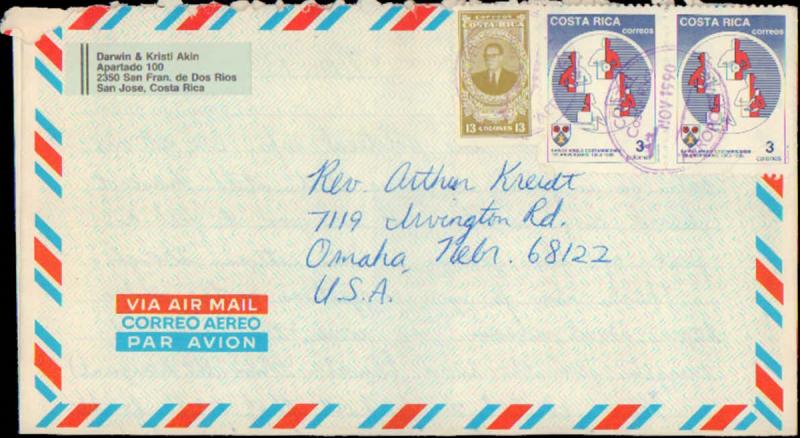 Darwin & Kristi Akin
Apartado 100
2350 San Fran. de Dos Rios
San Jose, Costa Rica
CORREOS
COSTA RICA
13 COLONES 13
COSTA RICA
correos
3
colones
COSTA RICA
correos
3
colones
NOV 1990
Rev. Arthur Kreidt
7119 Irvington Rd.
Omaha, Nebr. 68122
U.S.A.
VIA AIR MAIL
CORREO AEREO
PAR AVION